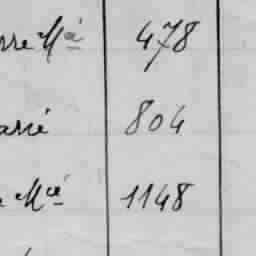 rre Mᵃ 478
arié 804
Mᵉ 1148